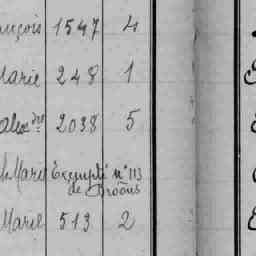 ançois 1547 4
Marie 248 1
alexdre 2038 5
Marie Exempté n° 113
de Broons
Marie 513 2